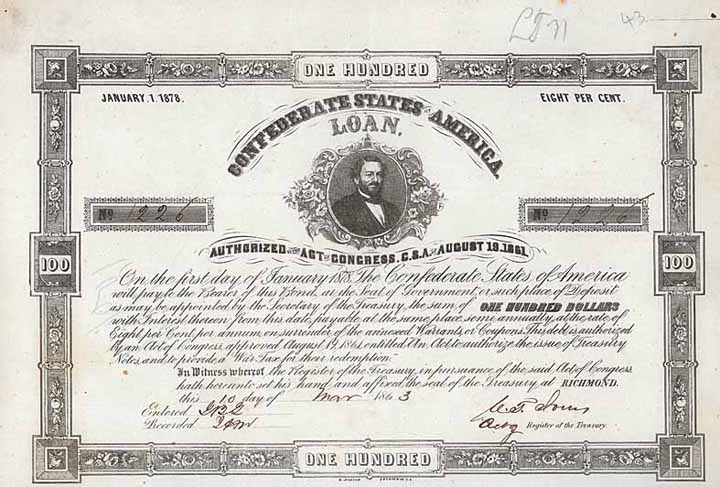 43
ONE HUNDRED
JANUARY. 1. 1878.
EIGHT PER CENT.
CONFEDERATE STATES OF AMERICA.
LOAN.
No 1226
No 1226
AUTHORIZED BY THE ACT OF CONGRESS, C.S.A. OF AUGUST 19. 1861.
100
100
On the first day of January 1878 The Confederate States of America
will pay to the Bearer of this Bond, at the Seat of Government, or such place of Deposit
as may be appointed by the Secretary of the Treasury, the sum of ONE HUNDRED DOLLARS
with Interest thereon from this date, payable at the same place semi annually, at the rate of
Eight per Cent. per annum, on surrender of the annexed Warrants, or Coupons. This debt is authorized
by an Act of Congress, approved August 19, 1861, entitled "An Act to authorize the issue of Treasury
Notes, and to provide a War Tax for their redemption."
In Witness whereof the Register of the Treasury, in pursuance of the said Act of Congress
hath hereunto set his hand and affixed the seal of the Treasury, at RICHMOND.
this 10 day of Mar 1863
Entered
Recorded
Actg Register of the Treasury.
ONE HUNDRED